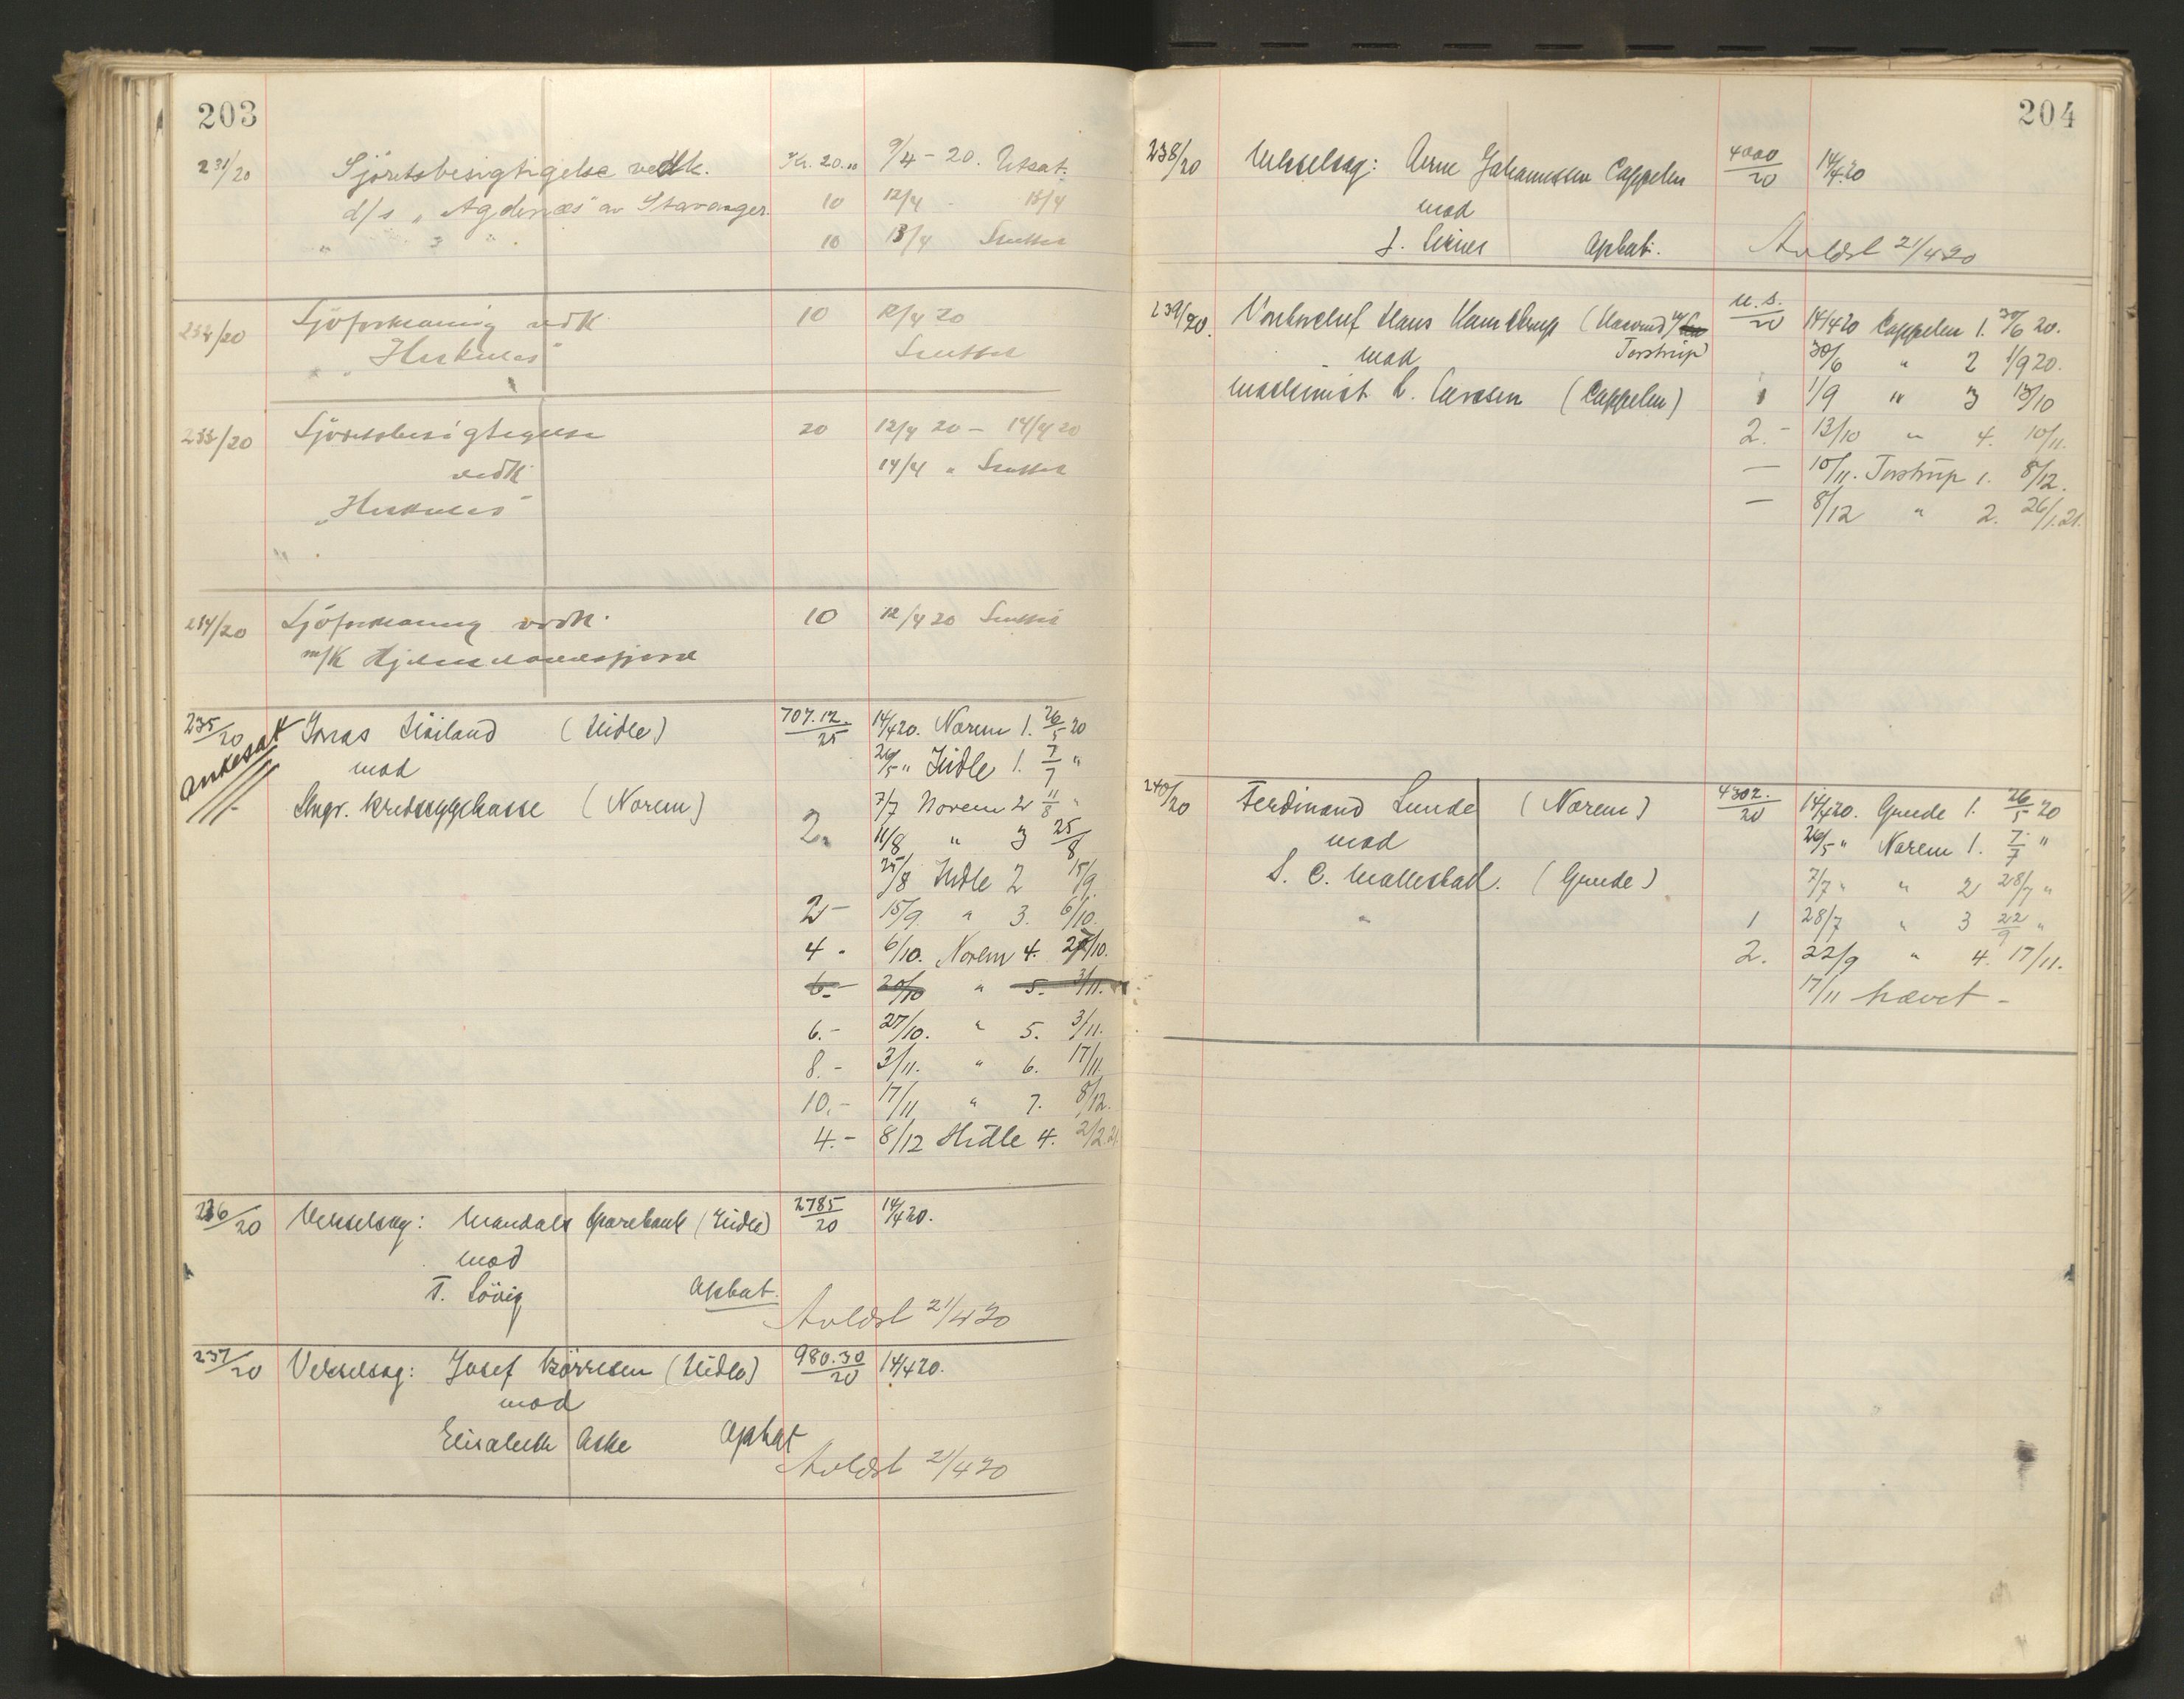 203
231/20 Sjøretsbesigtigelse vedk. Kr. 20.00 9/4 - 20. Utsat.
d/s "Agdenæs" av Stavanger. 10 12/4 - 13/4
" 3 " 10 13/4 Sluttet
232/20 Sjöforklaring vedk 10 12/4 20
"Herkules" Sluttet
233/20 Sjöretsbesigtigelse 20 12/4 20 - 14/4 20
vedk 14/4 " Sluttet
"Herkules"
234/20 Sjöforklaring vedk. 10 12/4 20 Sluttet
m/k
235/20 Jonas (Hidle) 707.12./25 14/4 20. Norem 1. 26/5 20
ankesat mod 26/5 " Hidle 1. 7/7 "
kredssygekasse (Norem) 7/7 Norem 2 11/8 "
2. 11/8 " 3 25/8
25/8 Hidle 2 15/9.
2 - 15/9. " 3. 6/10.
4 - 6/10. Norem 4. 27/10.
6.- 20/10 " 5. 3/11.
6.- 27/10. " 5. 3/11.
8.- 3/11. " 6. 17/11.
10.- 17/11 " 7. 8/12.
4.- 8/12 Hidle 4. 2/2 21.
236/20 Vekselsag: Mandals Sparebank (Hidle) 2785/20 14/4 20.
mod
T. Lövig Apkat.
Avldst 21/4 20
237/20 Vekselsag: Josef Börresen (Hidle) 980.30/20 14/4 20.
mod
Elisabeth Aske Apkat
Avldst 21/4 20
204
238/20 Vekselsag: Arne Johannessen Cappelen 4000/20 14/4 20
mod
J. Apkat. Avldst 21/4 20
239/20. Hans Kamstrup u.s./20 14/4 20 Cappelen 1. 30/6 20.
mod Torstrup) 30/6 " 2 1/9 20.
Maskinist L. Larssen (Cappelen) 1 1/9 " 3 13/10
2.- 13/10 " 4. 10/11.
— 10/11. Torstrup 1. 8/12.
— 8/12 " 2. 26/1.21.
240/20 Ferdinand Lunde (Norem) 4302./20 14/4 20. Grude 1. 26/5 20
mod 26/5 " Norem 1. 7/7 "
S. C. Mallestad. (Grude) 7/7 " " 2 28/7 "
" 1 28/7 " 3 22/9 "
2. 22/9 " 4. 17/11.
17/11 hævet -